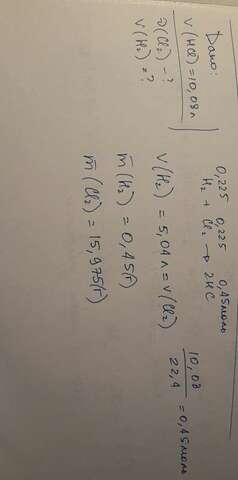 Дано:
V(HCl) = 10,08 л
ν(Cl₂) - ?
V(H₂) = ?
0,225 0,225 0,45 моль
H₂ + Cl₂ → 2HC
V(H₂) = 5,04 л = V(Cl₂)
m(H₂) = 0,45(г)
m(Cl₂) = 15,975(г)
10,08
22,4
= 0,45 моль